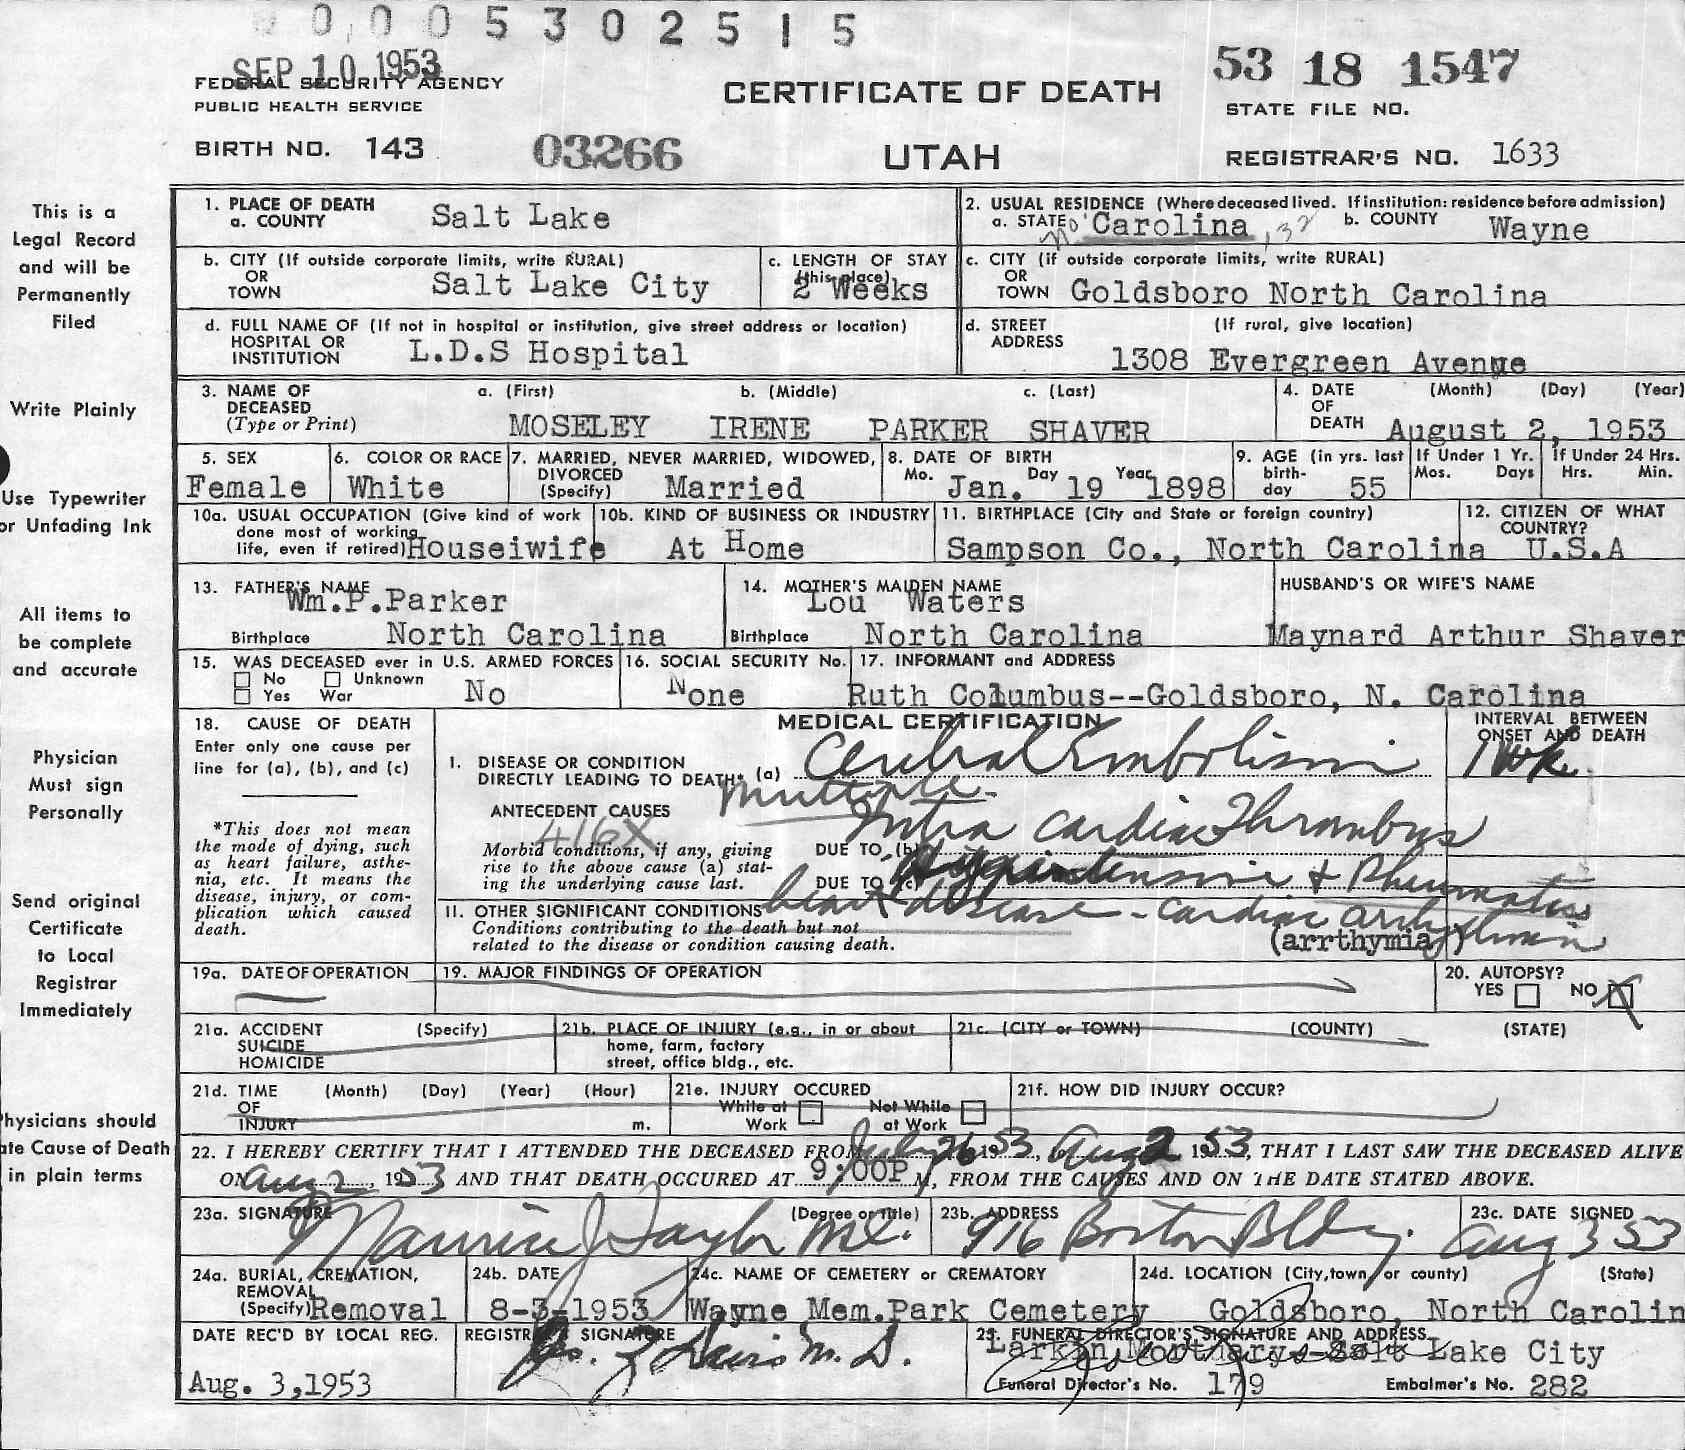 0,0 0 5 3 0 2 5 1 5
SEP 10 1953
53 18 1547
FEDERAL SECURITY AGENCY
PUBLIC HEALTH SERVICE
CERTIFICATE OF DEATH
STATE FILE NO.
BIRTH NO. 143
03266
UTAH
REGISTRAR'S NO. 1633
This is a
Legal Record
and will be
Permanently
Filed
Write Plainly
Use Typewriter
or Unfading Ink
All items to
be complete
and accurate
Physician
Must sign
Personally
Send original
Certificate
to Local
Registrar
Immediately
hysicians should
ate Cause of Death
in plain terms
1. PLACE OF DEATH
a. COUNTY Salt Lake
2. USUAL RESIDENCE (Where deceased lived. If institution: residence before admission)
a. STATE No Carolina, 32 b. COUNTY Wayne
b. CITY (If outside corporate limits, write RURAL)
OR
TOWN Salt Lake City
c. LENGTH OF STAY
(this place)
2 Weeks
c. CITY (if outside corporate limits, write RURAL)
OR
TOWN Goldsboro North Carolina
d. FULL NAME OF (If not in hospital or institution, give street address or location)
HOSPITAL OR
INSTITUTION L.D.S Hospital
d. STREET (If rural, give location)
ADDRESS
1308 Evergreen Avenue
3. NAME OF a. (First) b. (Middle) c. (Last)
DECEASED
(Type or Print) MOSELEY IRENE PARKER SHAVER
4. DATE (Month) (Day) (Year)
OF
DEATH August 2, 1953
5. SEX
Female
6. COLOR OR RACE
White
7. MARRIED, NEVER MARRIED, WIDOWED,
DIVORCED
(Specify) Married
8. DATE OF BIRTH
Mo. Day Year
Jan. 19 1898
9. AGE (in yrs. last
birth-
day 55
If Under 1 Yr.
Mos. Days
If Under 24 Hrs.
Hrs. Min.
10a. USUAL OCCUPATION (Give kind of work
done most of working
life, even if retired) Houseiwife
10b. KIND OF BUSINESS OR INDUSTRY
At Home
11. BIRTHPLACE (City and State or foreign country)
Sampson Co., North Carolina
12. CITIZEN OF WHAT
COUNTRY?
U.S.A
13. FATHER'S NAME
Wm.P.Parker
Birthplace North Carolina
14. MOTHER'S MAIDEN NAME
Lou Waters
Birthplace North Carolina
HUSBAND'S OR WIFE'S NAME
Maynard Arthur Shaver
15. WAS DECEASED ever in U.S. ARMED FORCES
No Unknown
Yes War No
16. SOCIAL SECURITY No.
None
17. INFORMANT and ADDRESS
Ruth Columbus--Goldsboro, N. Carolina
18. CAUSE OF DEATH
Enter only one cause per
line for (a), (b), and (c)
*This does not mean
the mode of dying, such
as heart failure, asthe-
nia, etc. It means the
disease, injury, or com-
plication which caused
death.
MEDICAL CERTIFICATION
INTERVAL BETWEEN
ONSET AND DEATH
I. DISEASE OR CONDITION
DIRECTLY LEADING TO DEATH* (a) Cerebral Embolism 1 Wk.
Multiple.
ANTECEDENT CAUSES
416X
Morbid conditions, if any, giving
rise to the above cause (a) stat-
ing the underlying cause last.
DUE TO (b) Intra cardiac Thrombus
DUE TO (c) Hypertensive & Rheumatic
heart disease - cardiac arrhythmia
(arrthymia)
II. OTHER SIGNIFICANT CONDITIONS
Conditions contributing to the death but not
related to the disease or condition causing death.
19a. DATE OF OPERATION
19. MAJOR FINDINGS OF OPERATION
20. AUTOPSY?
YES NO X
21a. ACCIDENT (Specify)
SUICIDE
HOMICIDE
21b. PLACE OF INJURY (e.g., in or about
home, farm, factory
street, office bldg., etc.
21c. (CITY or TOWN) (COUNTY) (STATE)
21d. TIME (Month) (Day) (Year) (Hour)
OF
INJURY m.
21e. INJURY OCCURED
While at Not While
Work at Work
21f. HOW DID INJURY OCCUR?
22. I HEREBY CERTIFY THAT I ATTENDED THE DECEASED FROM July 26 1953, to Aug 2 1953, THAT I LAST SAW THE DECEASED ALIVE
ON Aug 2, 1953 AND THAT DEATH OCCURED AT 9:00P M, FROM THE CAUSES AND ON THE DATE STATED ABOVE.
23a. SIGNATURE (Degree or title)
Maurice J Taylor M.D.
23b. ADDRESS
916 Boston Bldg.
23c. DATE SIGNED
Aug 3 53
24a. BURIAL, CREMATION,
REMOVAL
(Specify) Removal
24b. DATE
8-3-1953
24c. NAME OF CEMETERY or CREMATORY
Wayne Mem.Park Cemetery
24d. LOCATION (City, town, or county) (State)
Goldsboro, North Carolin
DATE REC'D BY LOCAL REG.
Aug. 3,1953
REGISTRAR'S SIGNATURE
M.D.
25. FUNERAL DIRECTOR'S SIGNATURE AND ADDRESS
Larkin Mortuary-Salt Lake City
Funeral Director's No. 179 Embalmer's No. 282